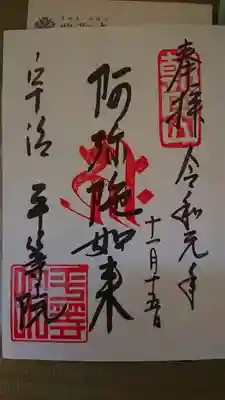 奉拝 令和元年
十一月十五日
阿弥陀如来
宇治 平等院